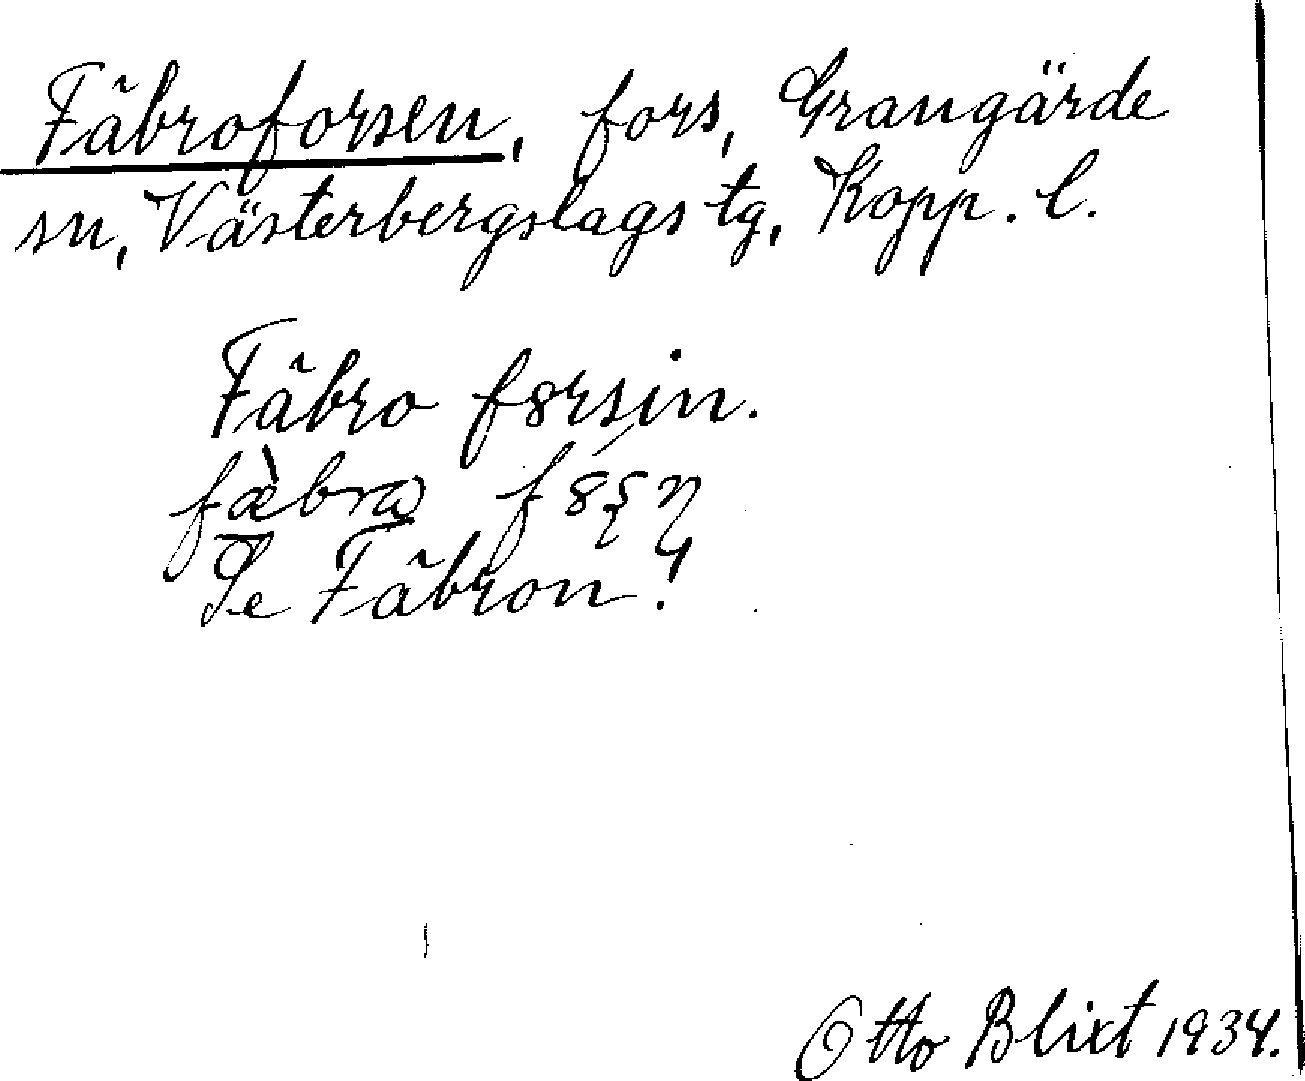 Fäbroforsen, fors, Grangärde
sn, Västerbergslags tg, Kopp. l.
Fäbro f8rsin.
Se Fäbron!
Otto Blixt 1934.